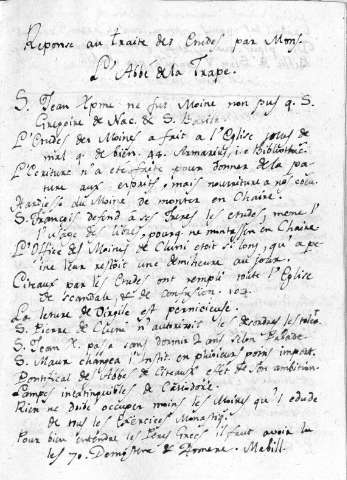 Reponse au traite des Etudes par Mons.
L'Abbé de la Trape.
S. Jean Xpme ne fut Moine non plus q. S.
Gregoire de Naz. de S. Basile.
L'Etudes des Moines a fait a l'Eglise plus de
mal q. de bien. 44. Armarius, i.e. Bibliothec.
L'Ecriture n'a ete faite pour donner de la pa-
ture aux esprits, mais nourriture a nos cœu.
Hardiesse du Moine de monter en Chaire.
S. François defend a ses freres les etudes, meme l'
usage des livres, pourq. ne montassent en Chaire
L'Office des Moines de Cluni etoit si long, qu'a pe-
ine leur restoit une demiheure au jour.
Citaux par les Etudes ont rempli toute l'Eglise
de scandale, & de confusion. 104
La leture de Virgile est pernicieuse.
S. Pierre de Cluni n'autorisoit les desordres
S. Jean X. pasa sans dormir 2 ans selon Palade.
S. Maur changea l'Instit. en plusieur poins import.
Pontifical des Abbes de Citeaux efet de son ambition.
Lampes inextinguibles de Casiodore.
Rien ne doit occuper moins les Moines qu'l etude
de tous les Exercices Monastiq.
Pour bien entendre les Peres Grecs il faut avoir lu
les 70. Demostene & Homere. Mabill.